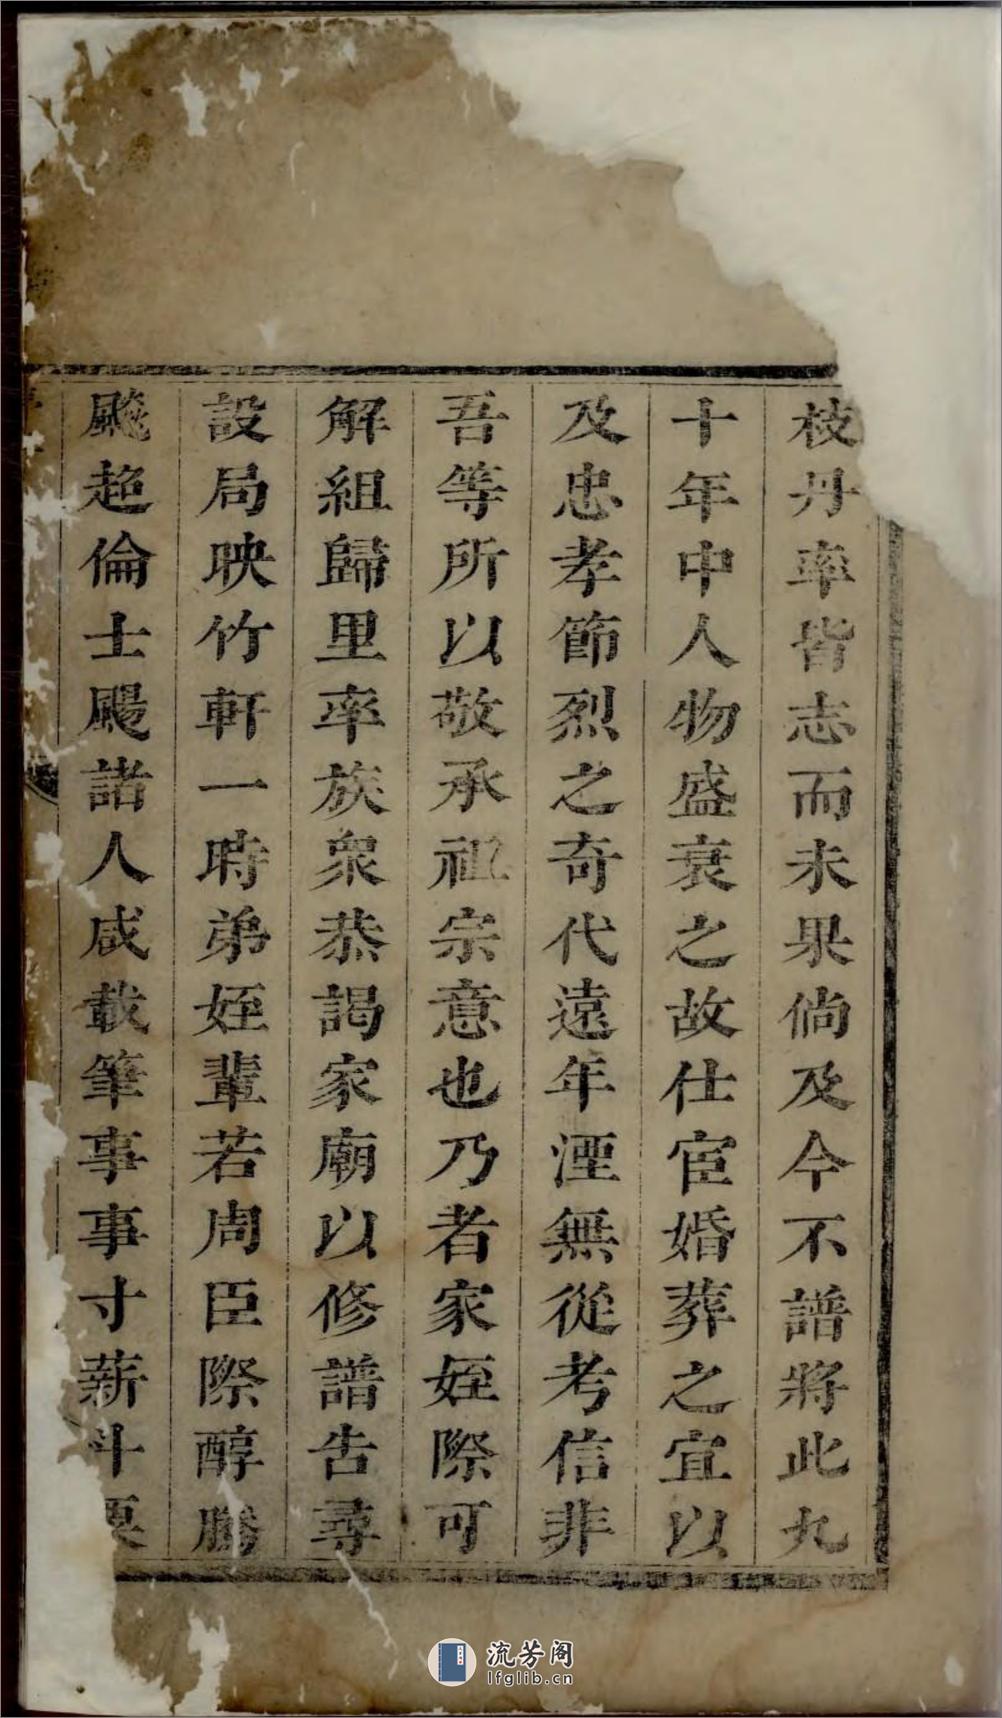 枝丹率皆志而未果倘及今不譜將此九
十年中人物盛衰之故仕宦婚葬之宜以
及忠孝節烈之奇代遠年湮無從考信非
吾等所以敬承祖宗意也乃者家姪際可
解組歸里率族衆恭謁家廟以修譜告尋
設局映竹軒一時弟姪輩若周臣際醇勝
颷超倫士颺諸人咸載筆事事寸薪斗
流芳阁
lfglib.cn